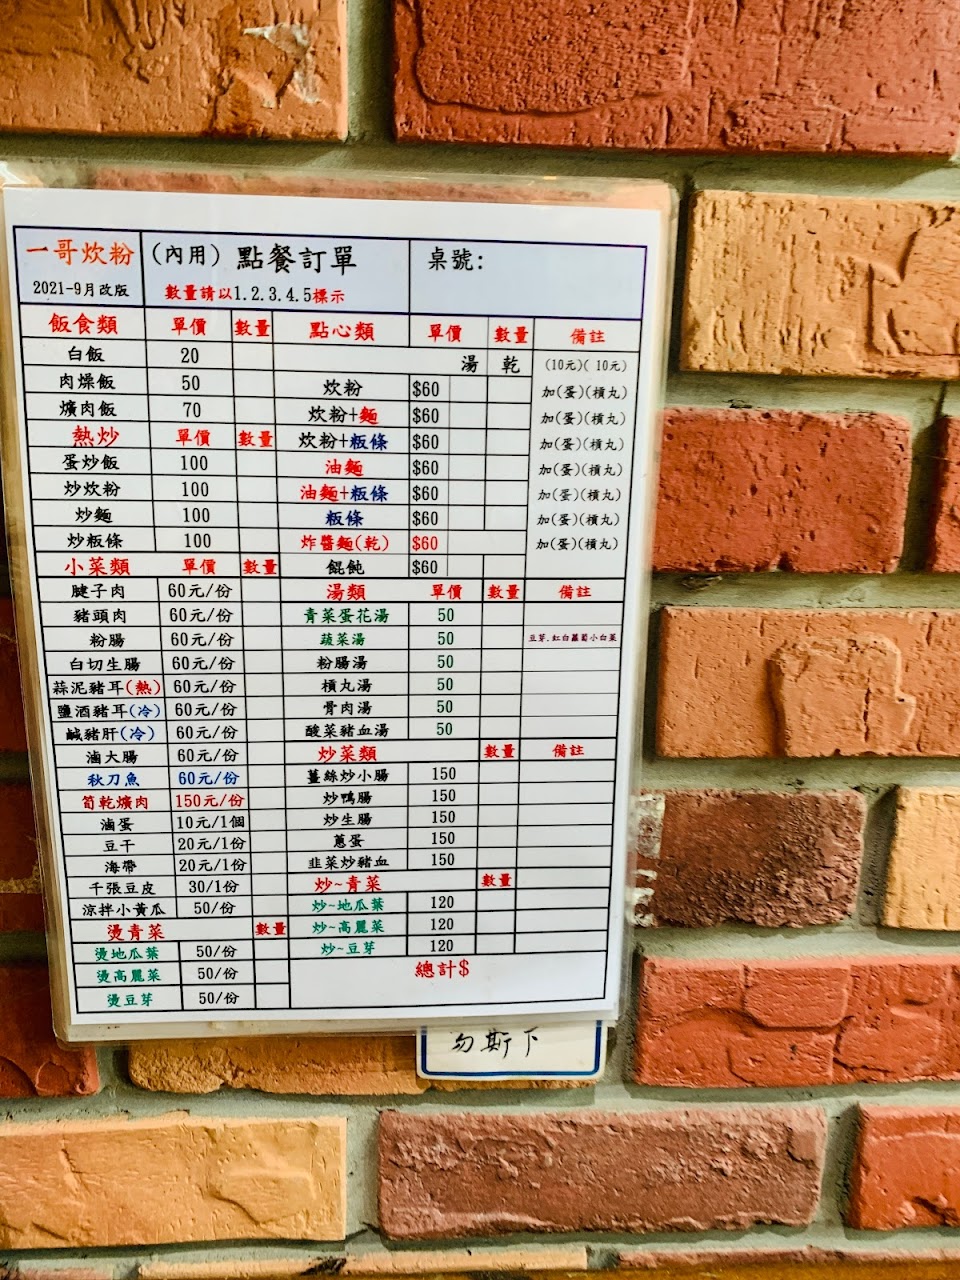 一哥炊粉 (內用) 點餐訂單 桌號:
2021-9月改版 數量請以1.2.3.4.5標示
飯食類 單價 數量 點心類 單價 數量 備註
白飯 20 湯 乾 (10元)(10元)
肉燥飯 50 炊粉 $60 加(蛋)(摃丸)
爌肉飯 70 炊粉+麵 $60 加(蛋)(摃丸)
熱炒 單價 數量 炊粉+粄條 $60 加(蛋)(摃丸)
蛋炒飯 100 油麵 $60 加(蛋)(摃丸)
炒炊粉 100 油麵+粄條 $60 加(蛋)(摃丸)
炒麵 100 粄條 $60 加(蛋)(摃丸)
炒粄條 100 炸醬麵(乾) $60 加(蛋)(摃丸)
小菜類 單價 數量 餛飩 $60
腱子肉 60元/份 湯類 單價 數量 備註
豬頭肉 60元/份 青菜蛋花湯 50
粉腸 60元/份 蔬菜湯 50 豆芽.紅白蘿蔔小白菜
白切生腸 60元/份 粉腸湯 50
蒜泥豬耳(熱) 60元/份 摃丸湯 50
鹽酒豬耳(冷) 60元/份 骨肉湯 50
鹹豬肝(冷) 60元/份 酸菜豬血湯 50
滷大腸 60元/份 炒菜類 數量 備註
秋刀魚 60元/份 薑絲炒小腸 150
筍乾爌肉 150元/份 炒鴨腸 150
滷蛋 10元/1個 炒生腸 150
豆干 20元/1份 蔥蛋 150
海帶 20元/1份 韭菜炒豬血 150
千張豆皮 30/1份 炒~青菜 數量
涼拌小黃瓜 50/份 炒~地瓜葉 120
燙青菜 數量 炒~高麗菜 120
燙地瓜葉 50/份 炒~豆芽 120
燙高麗菜 50/份 總計$
燙豆芽 50/份
勿斯下